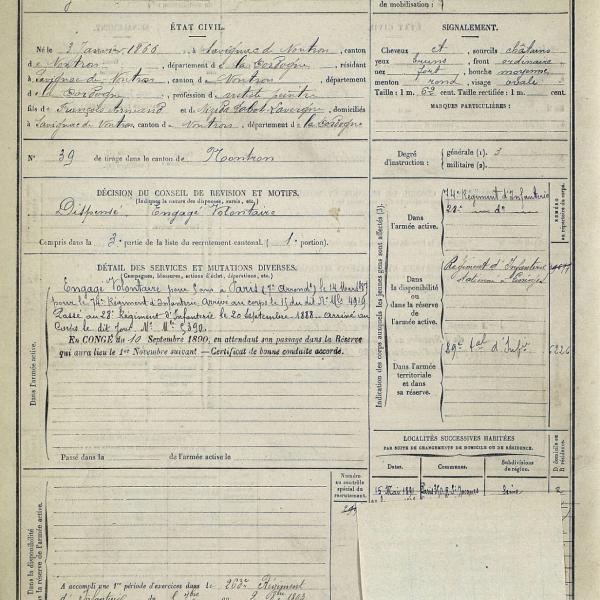 de mobilisation :
ÉTAT CIVIL.
Né le 3 Janvier 1866, à Savignac de Nontron, canton
de Nontron, département d la Dordogne, résidant
à Savignac de Nontron, canton de Nontron, département
d la Dordogne, profession d artiste peintre
fils de François Armand et domiciliés
à Savignac de Nontron, canton de Nontron, département de la Dordogne
N° 39 de tirage dans le canton de Nontron
DÉCISION DU CONSEIL DE REVISION ET MOTIFS.
(Indiquer la nature des dispenses, sursis, etc.)
Dispensé. Engagé Volontaire
Compris dans la 3e partie de la liste du recrutement cantonal. ( 1e portion).
DÉTAIL DES SERVICES ET MUTATIONS DIVERSES.
(Campagnes, blessures, actions d'éclat, décorations, etc.)
Engagé Volontaire pour 5 ans à Paris (7e Arrondt) le 14 Mars
pour le 74e Régiment d'Infanterie Arrivé au corps le 15 du dit N° Mle 4919
Passé au 28e Régiment d'Infanterie le 20 Septembre 1888 arrivé au
Corps le dit jour N° Mle 5390.
En CONGÉ du 10 Septembre 1890, en attendant son passage dans la Réserve
qui aura lieu le 1er Novembre suivant — Certificat de bonne conduite accordé.
Dans l'armée active.
Passé dans la de l'armée active le
Numéro au contrôle spécial du recrutement.
Dans la disponibilité
ou dans la réserve de l'armée active.
A accompli une 1re période d'exercices dans le 263e Régiment
d'Infanterie
SIGNALEMENT.
Cheveux et sourcils châtains
yeux bruns, front ordinaire
nez fort, bouche moyenne
menton rond, visage ovale
Taille : 1 m. 62 cent. Taille rectifiée : 1 m. cent.
MARQUES PARTICULIÈRES :
Degré d'instruction : générale (1). 3
militaire (2).
Indication des corps auxquels les jeunes gens sont affectés (3).
NUMÉRO au répertoire du corps.
Dans l'armée active.
74e Régiment d'Infanterie
28e do
Dans la disponibilité ou dans la réserve de l'armée active.
Régiment d'Infanterie
Dans l'armée territoriale et dans sa réserve.
89e tal d'Infie
LOCALITÉS SUCCESSIVES HABITÉES
PAR SUITE DE CHANGEMENTS DE DOMICILE OU DE RÉSIDENCE.
Dates. Communes. Subdivisions de région. D. domicile ou R. résidence.
15 Mai 1891 Paris St Jacques Seine R